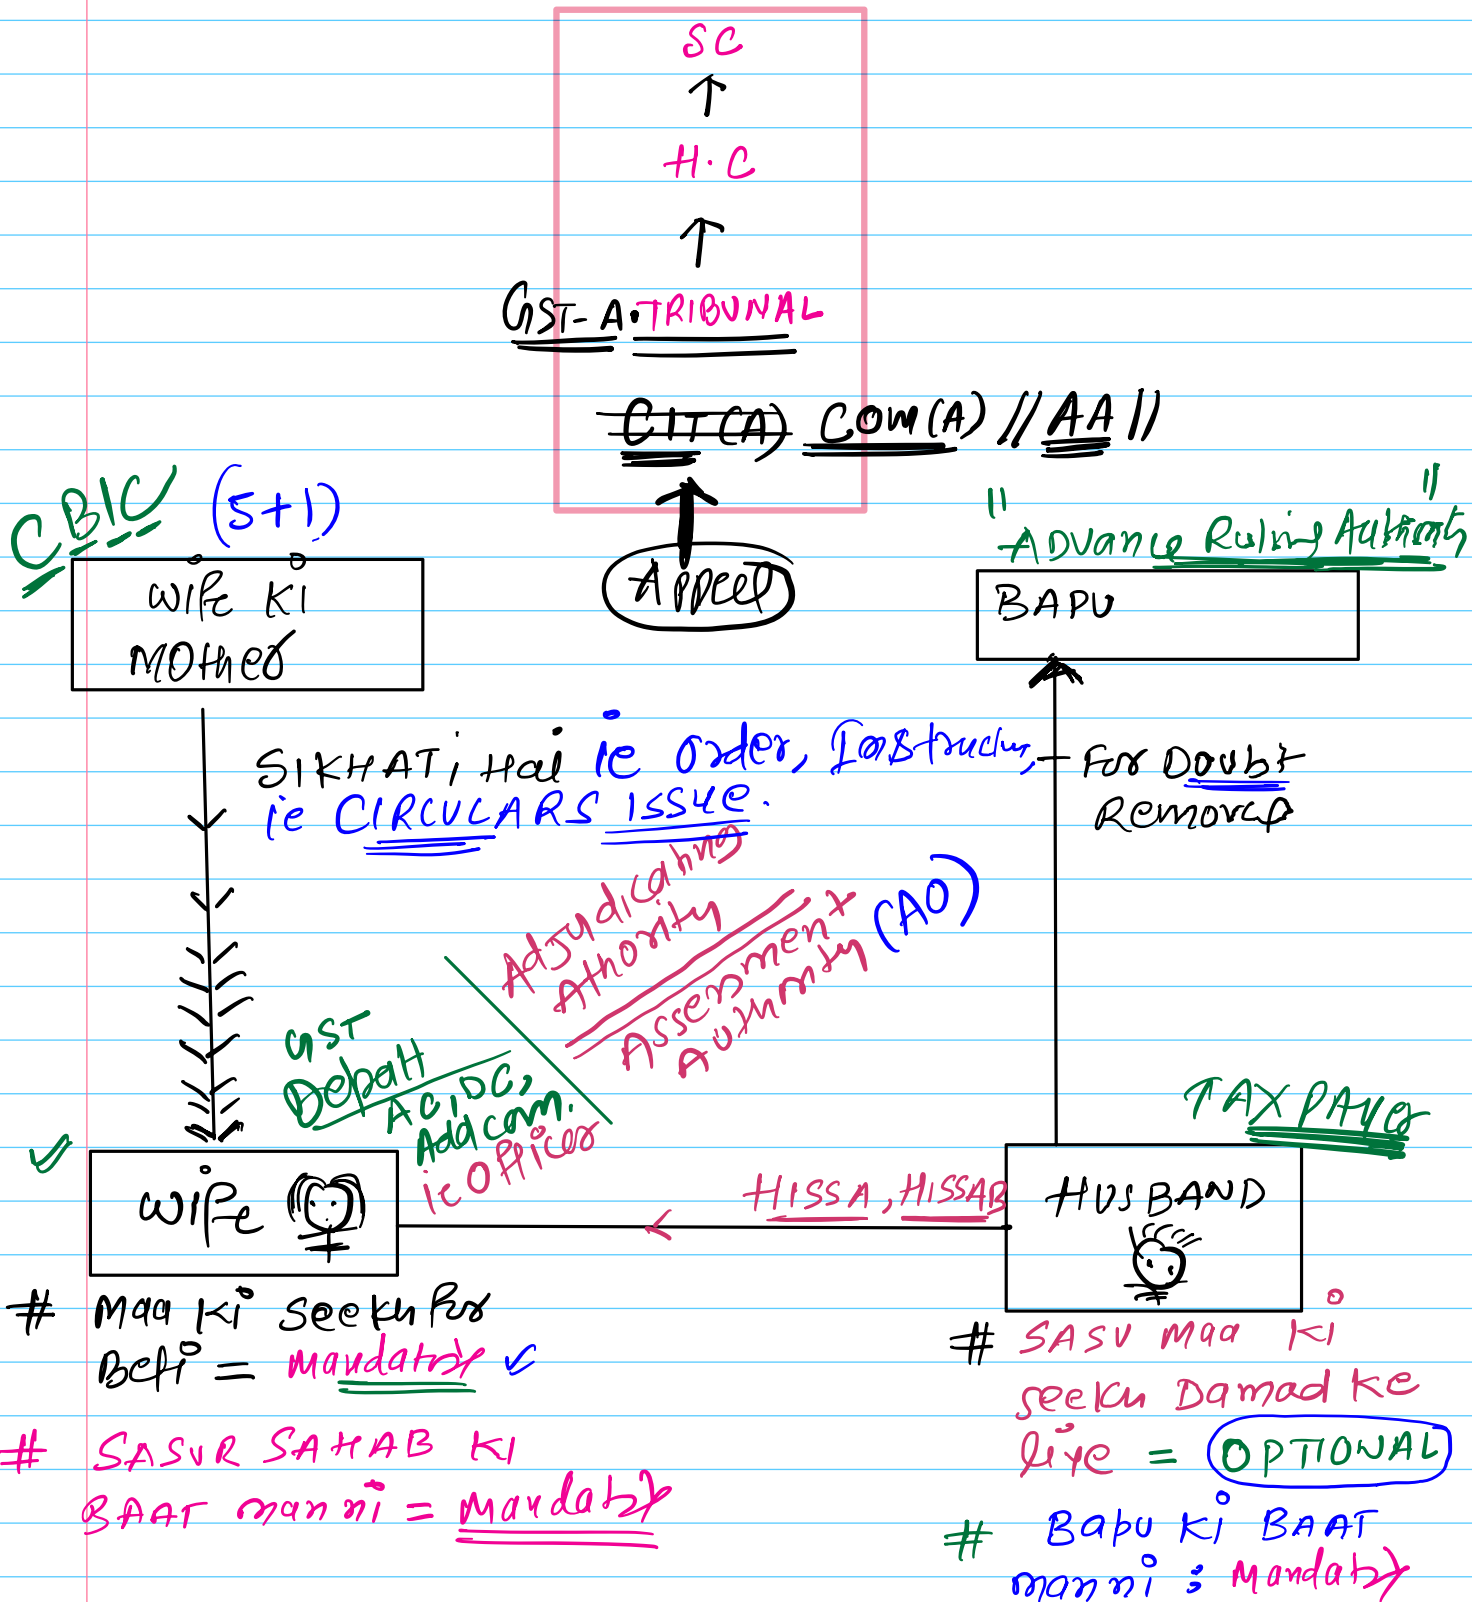 SC
H.C
GST-A.TRIBUNAL
CIT(A) COM(A) //AA//
CBIC (5+1)
"ADVANCE Ruling Authority"
WIFE KI
MOTHER
Appeal
BAPU
SIKHATi Hai ie order, Instruction,
ie CIRCULARS ISSUE.
For Doubt
Removal
Adjudicating
Athority
Assessment
Authority (AO)
GST
Depatt
AC, DC,
Add com.
ie Officer
TAX PAYER
WIFE
HISSA, HISSAB
HUSBAND
# Maa Ki Seekh For
Beti = Mandatry
# SASUR SAHAB KI
BAAT manni = Mandatry
# SASU Maa Ki
seekh Damad Ke
liye = OPTIONAL
# Bapu Ki BAAT
manni : Mandatry